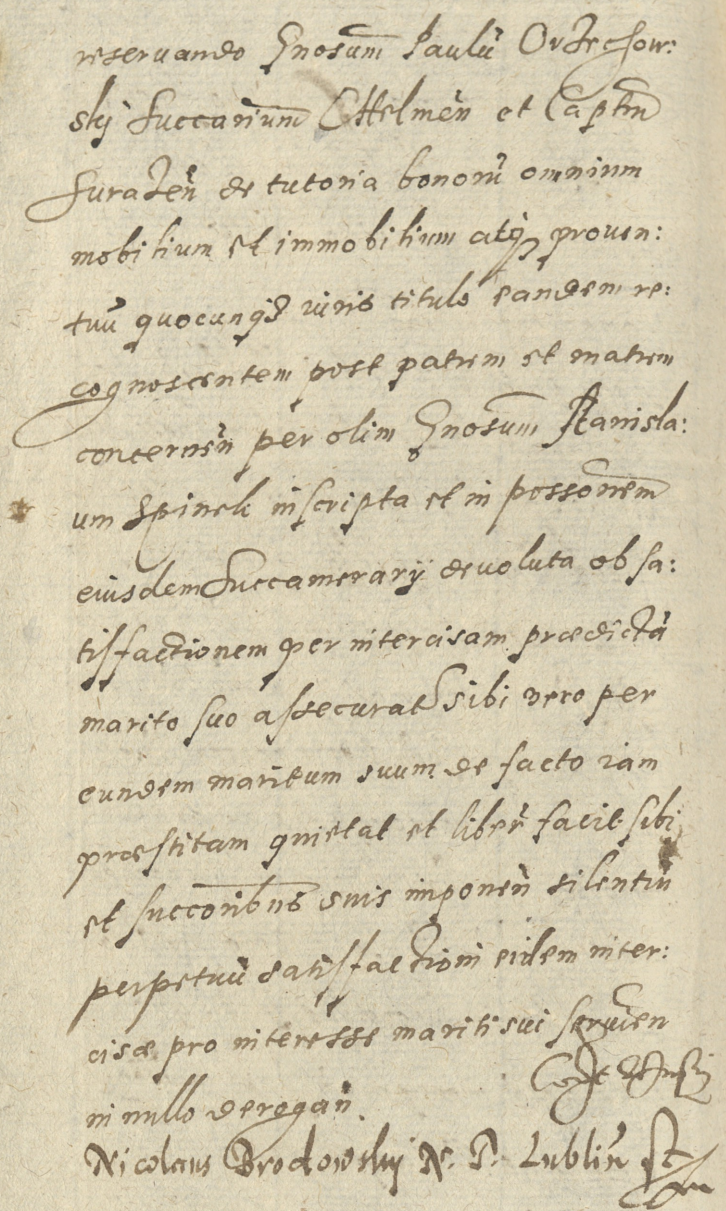 reseruando Gnosum Paulū Orzechow:
skij Succarium Chelmen̄ et Captm̄
Suraźen̄ de tutoria bonorū omnium
mobilium et immobilium atq̄ prouen:
tuū quocunq̄ȝ iuris titulo eandem re:
cognoscentem post patrem et matrem
concernen̄ per olim Gnosum Stanisla:
um Spinek inscripta et in possonem
eiusdem Succamerarij deuoluta ob sa:
tisfactionem per intercisam praedictā
marito suo assecurat sibi vero per
eundem maritum suum de facto iam
praestitam quietat et liber̄ facit sibi
et succoribus suis imponen̄ silentiū
perpetuū satisfactioni eidem inter:
cisae pro interesse mariti sui seruien
in nullo derogan̄.
Nicolaus Brodowskij N. P. Lublin̄